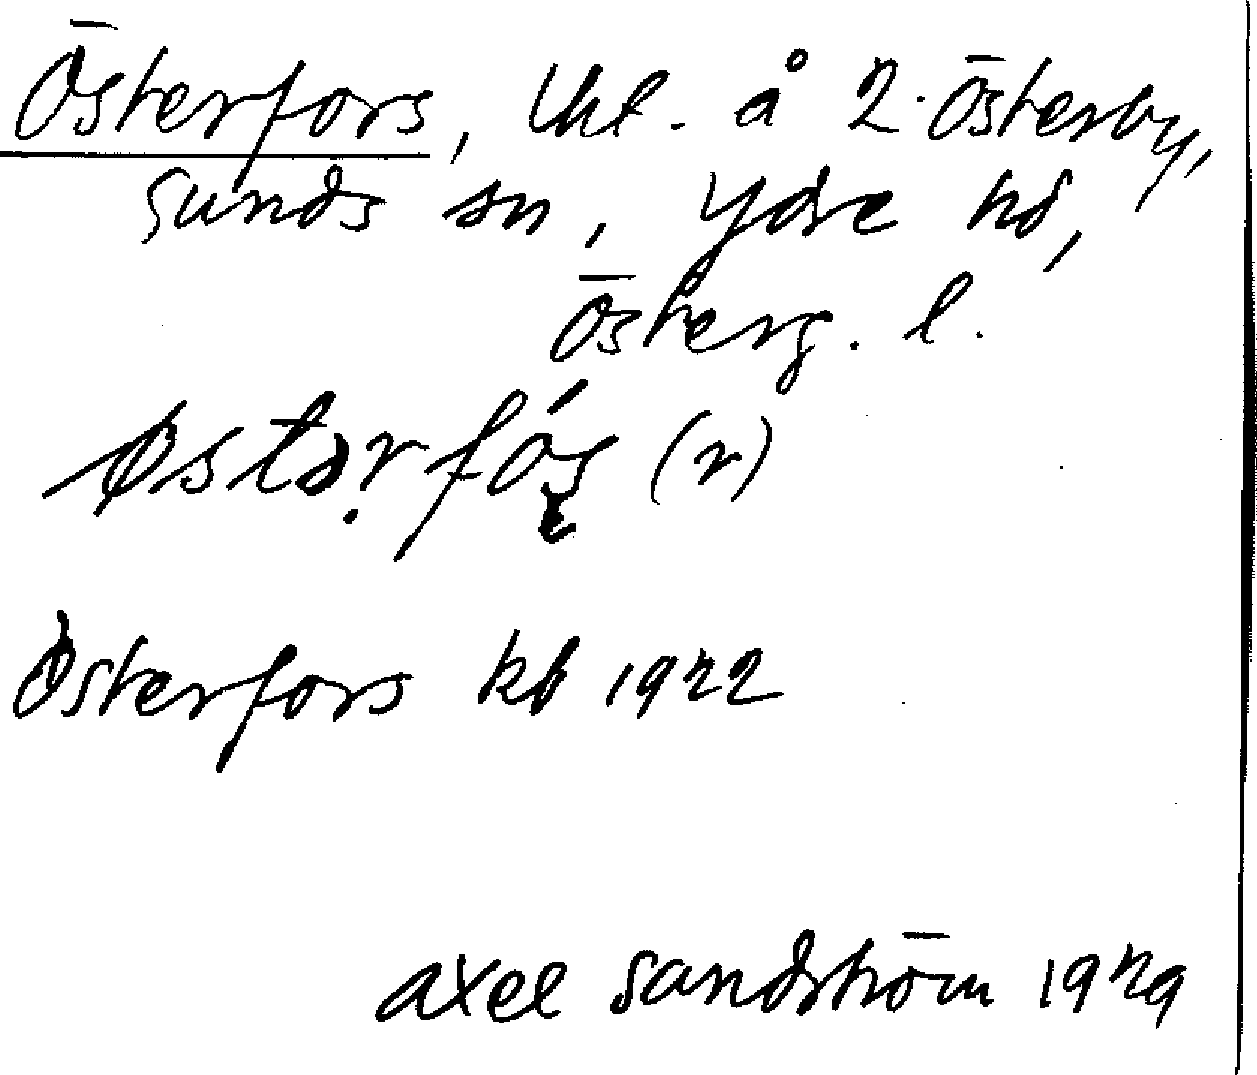 Österfors, lht. å 2 Österby,
Sunds sn, Ydre hd,
Österg. l.
østərfós (r)
Österfors kb 1922
Axel Sandström 1929